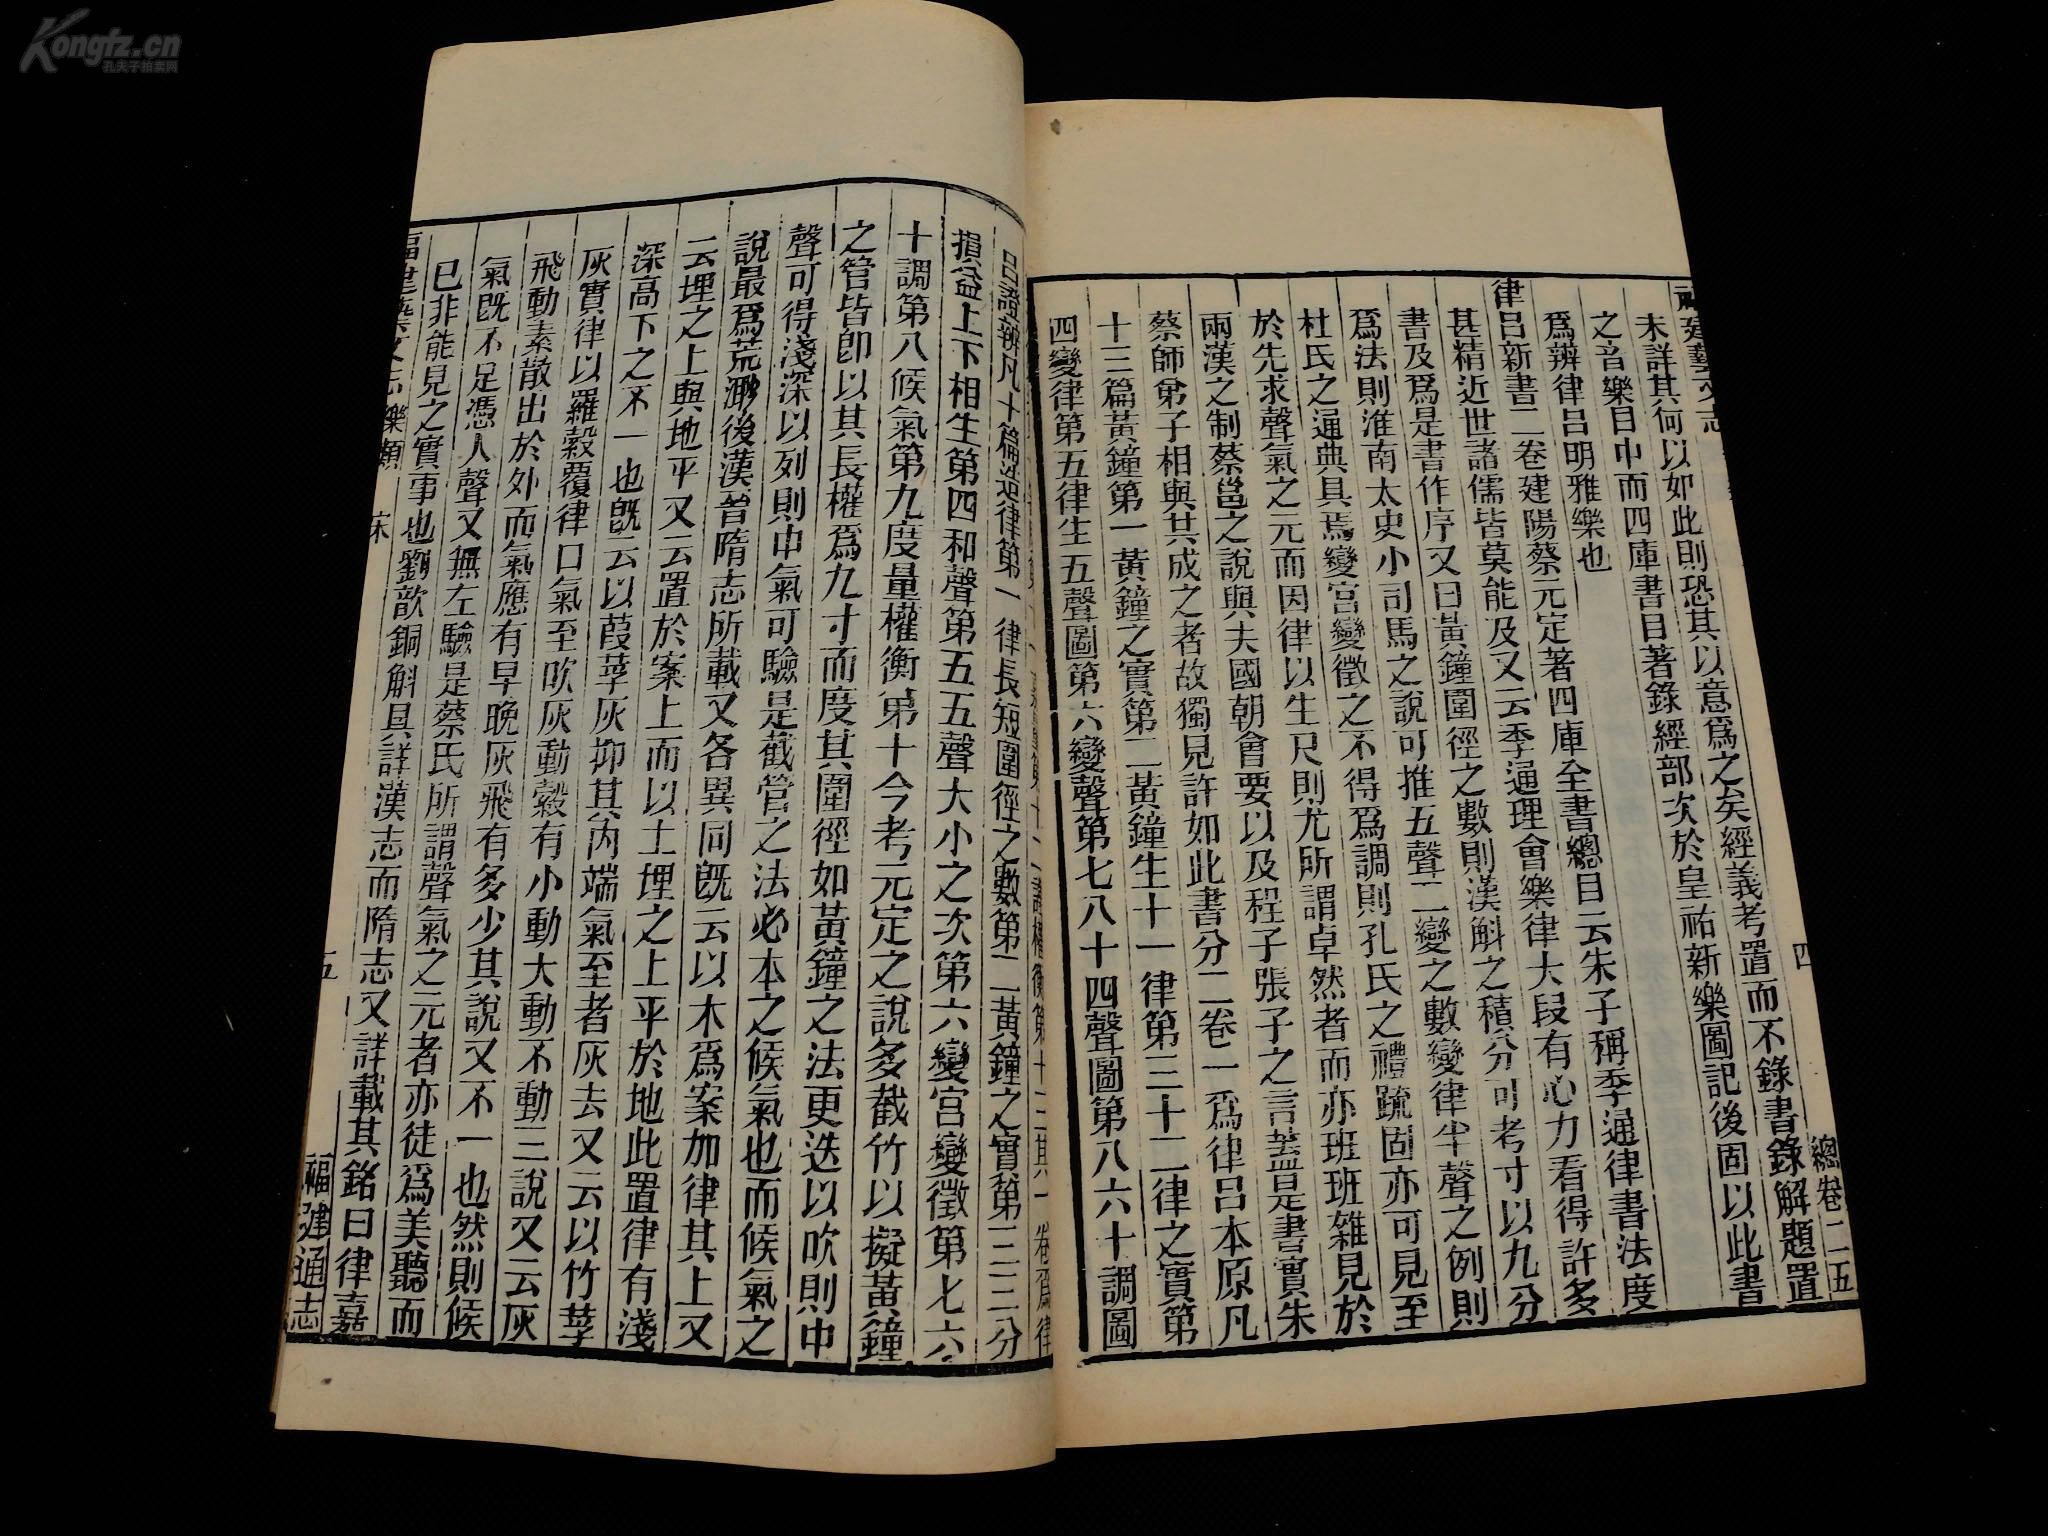 Kongfz.cn
孔夫子拍卖网
福建藝文志
四
總卷二五
未詳其何以如此則恐其以意爲之矣經義考置而不錄書錄解題置
之音樂目中而四庫書目著錄經部次於皇祐新樂圖記後固以此書
爲辨律呂明雅樂也
律呂新書二卷建陽蔡元定著四庫全書總目云朱子稱季通律書法度
甚精近世諸儒皆莫能及又云季通理會樂律大段有心力看得許多
書及爲是書作序又曰黃鐘圍徑之數則漢斛之積分可考寸以九分
爲法則淮南太史小司馬之說可推五聲二變之數變律半聲之例則
杜氏之通典具焉變宮變徵之不得爲調則孔氏之禮疏固亦可見至
於先求聲氣之元而因律以生尺則尤所謂卓然者而亦班班雜見於
兩漢之制蔡邕之說與夫國朝會要以及程子張子之言蓋是書實朱
蔡師弟子相與共成之者故獨見許如此書分二卷一爲律呂本原凡
十三篇黃鐘第一黃鐘之實第二黃鐘生十一律第三十二律之實第
四變律第五律生五聲圖第六變聲第七八十四聲圖第八六十調圖
一卷爲律
呂證辨凡十篇造律第一律長短圍徑之數第二黃鐘之實第三三分
損益上下相生第四和聲第五五聲大小之次第六變宮變徵第七六
十調第八候氣第九度量權衡第十今考元定之說多截竹以擬黃鐘
之管皆即以其長權爲九寸而度其圍徑如黃鐘之法更迭以吹則中
聲可得淺深以列則中氣可驗是截管之法必本之候氣也而候氣之
說最爲荒渺後漢晉隋志所載又各異同旣云以木爲案加律其上又
云埋之上與地平又云置於案上而以土埋之上平於地此置律有淺
深高下之不一也旣云以葭莩灰抑其內端氣至者灰去又云以竹莩
灰實律以羅縠覆律口氣至吹灰動縠有小動大動不動三說又云灰
飛動素散出於外而氣應有早晚灰飛有多少其說又不一也然則候
氣旣不足憑人聲又無左驗是蔡氏所謂聲氣之元者亦徒爲美聽而
已非能見之實事也劉歆銅斛具詳漢志而隋志又詳載其銘曰律嘉
福建藝文志
樂類
宋
五
福建通志